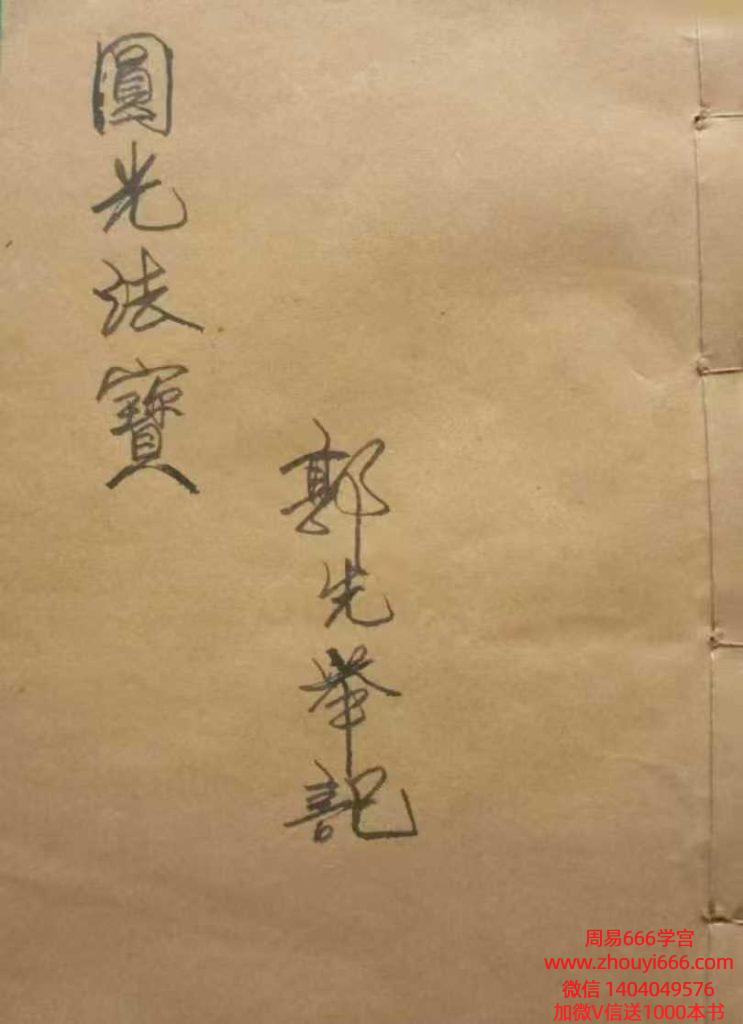 圓光法寶
郭先举記
周易666学宫
www.zhouyi666.com
微信 1404049576
加微V信送1000本书